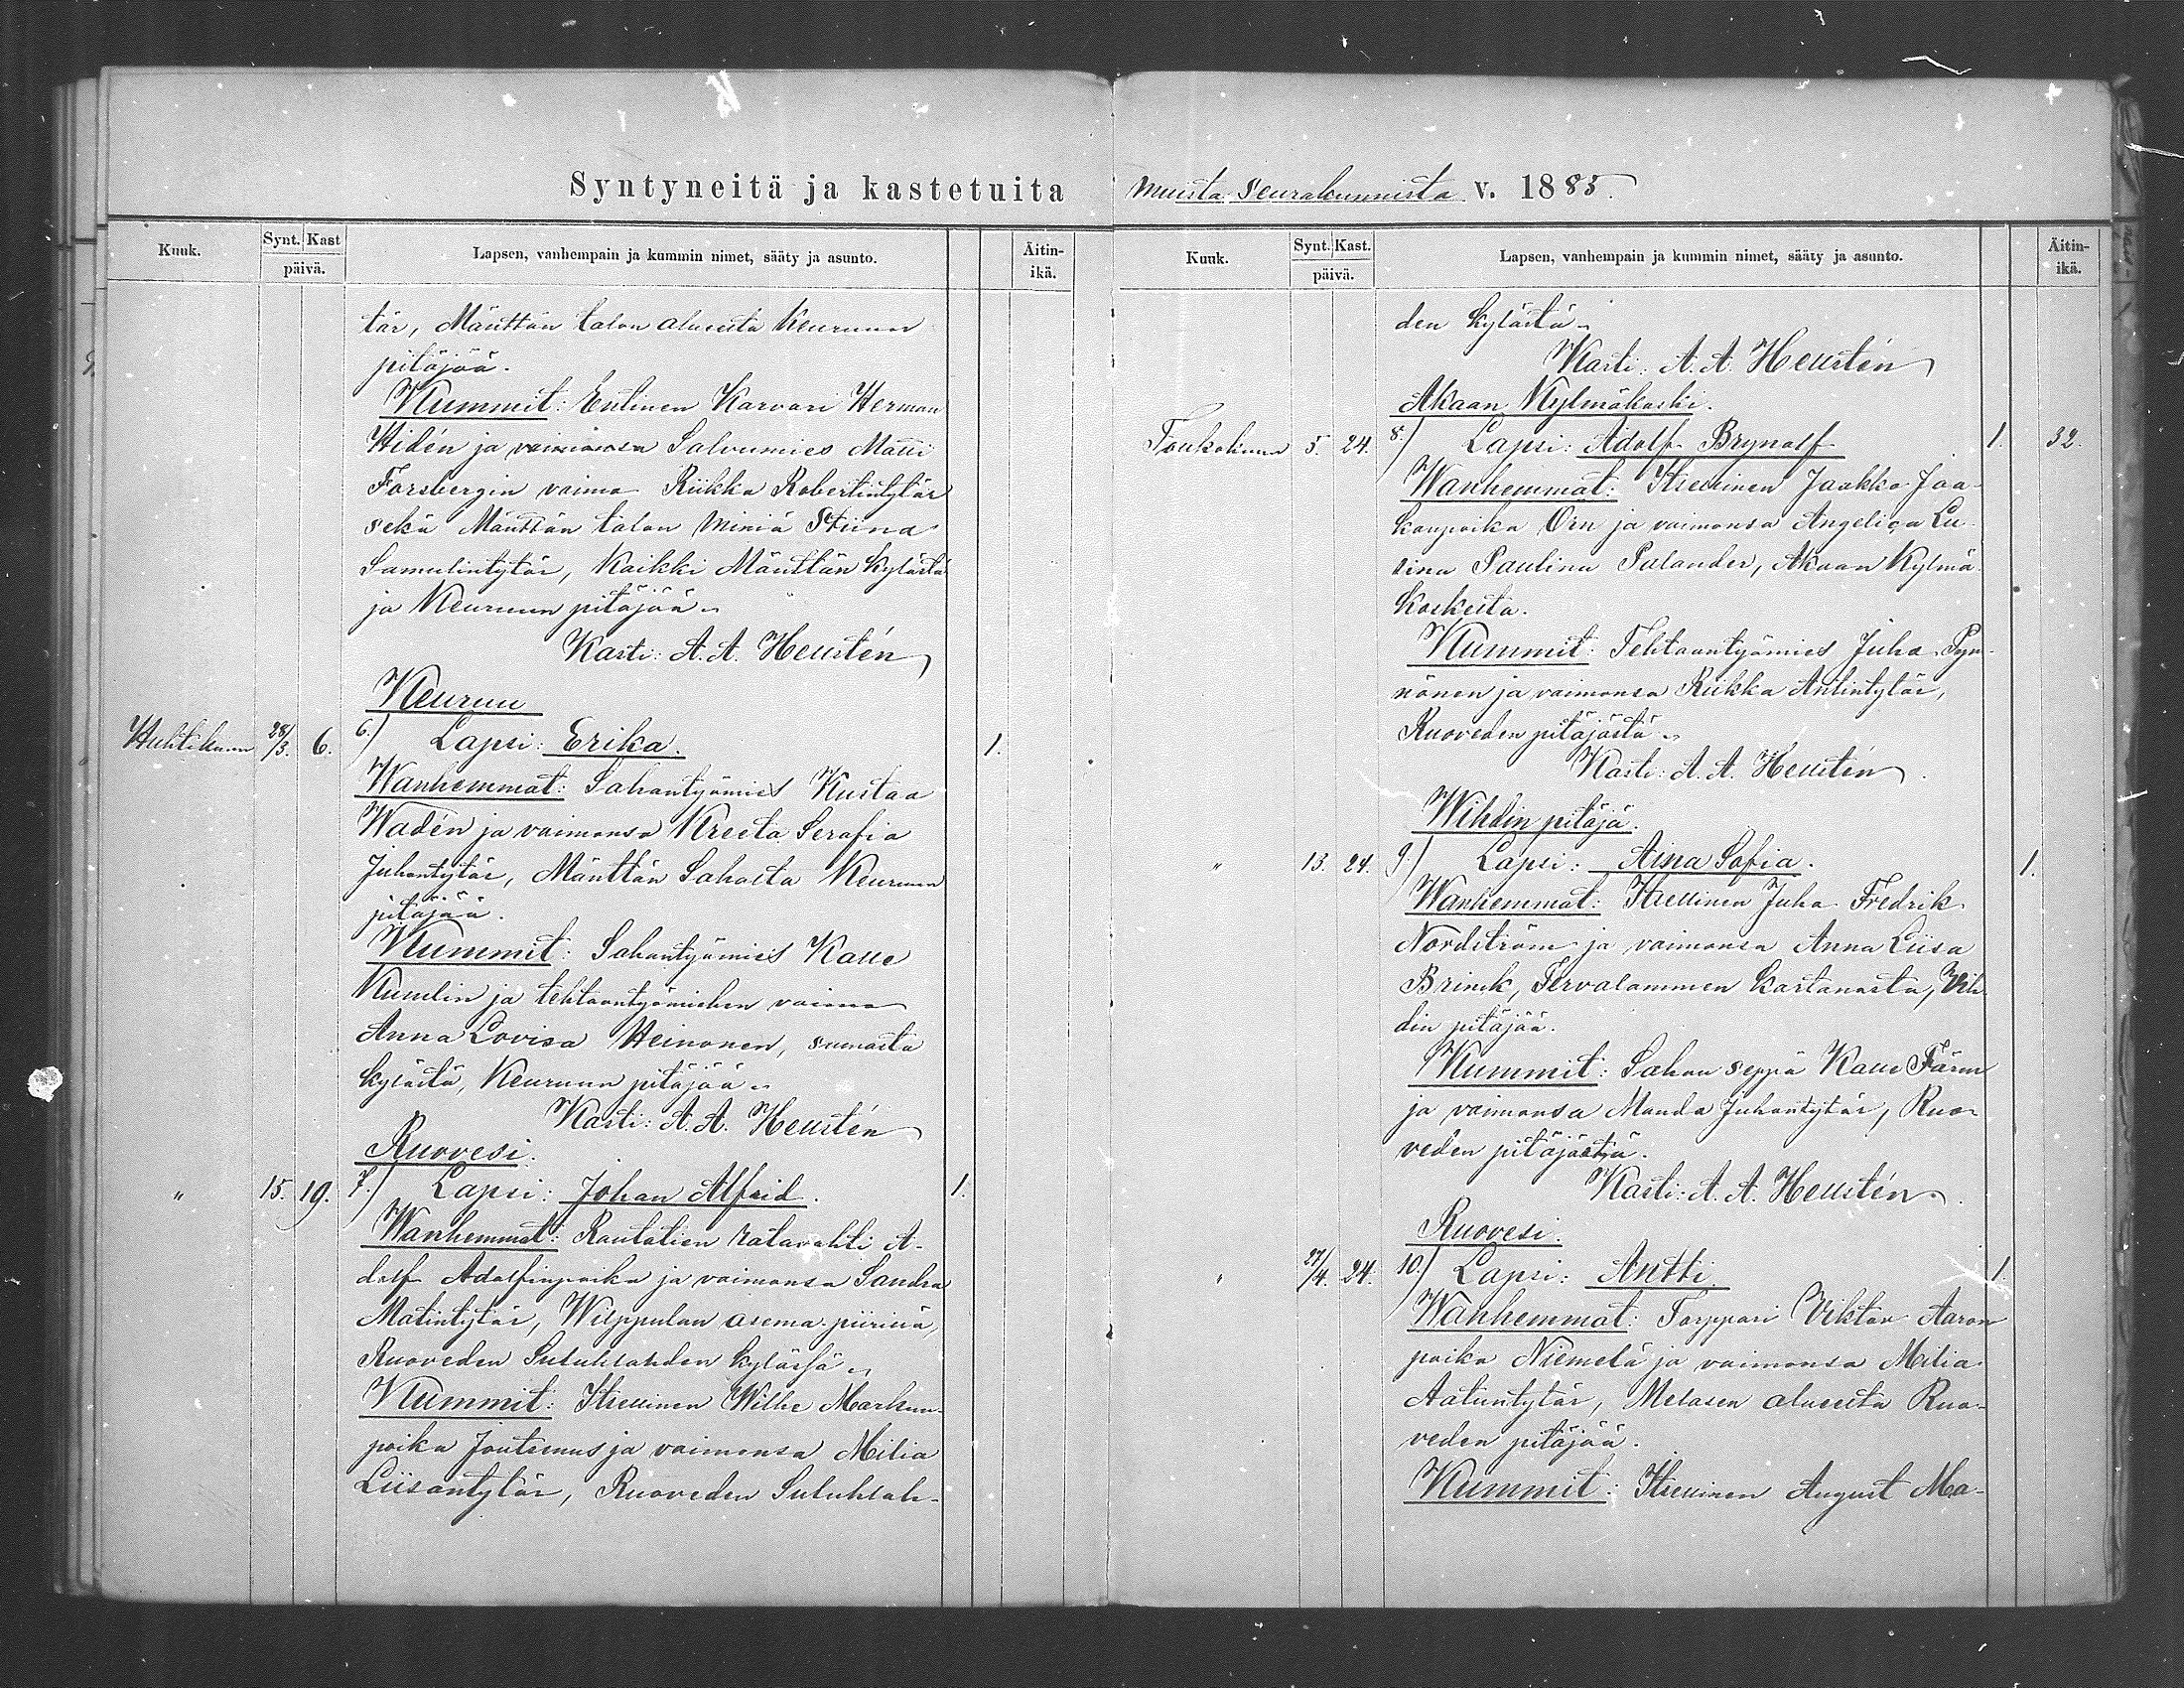 Syntyneitä ja kastetuita
Kuuk.
Synt. Kast
päivä.
Lapsen, vanhempain ja kummin nimet, sääty ja asunto.
Äitin-
ikä.
tär, Mänttän talon alueesta Keuruun
pitäjää.
Kummit: Entinen Karvari Herman
Hidén ja vaimonsa Salvumies Matti
Forsbergin vaimo Riikka Robertintytär
sekä Mänttän talon miniä Stiina
Samulintytär, Kaikki Mänttän kylästä
ja Keuruun pitäjää.
Kasti: A. A. Hellstén
Keuruu
Huhtikuun 28/3. 6. 6.) Lapsi: Erika. 1.
Wanhemmat: Sahantyömies Kustaa
Wadén ja vaimonsa Kreeta Serafia
Juhantytär, Mänttän Sahasta Keuruun
pitäjää.
Kummit: Sahantyömies Kalle
Kumlin ja tehtaantyömiehen vaimo
Anna Lovisa Heinonen, samasta
kylästä, Keuruun pitäjää.
Kasti: A. A. Hellstén
Ruovesi.
" 15. 19. 7.) Lapsi: Johan Alfrid. 1.
Wanhemmat: Rautatien ratavahti A-
dolf Adolfinpoika ja vaimonsa Sandra
Matintytär, Wilppulan asema piirinä,
Ruoveden Suluslahden kylässä.
Kummit: Itsellinen Wille Markun-
poika Joutsenus ja vaimonsa Milia
Liisantytär, Ruoveden
muista seurakunnista v. 1885.
Kuuk.
Synt. Kast.
päivä.
Lapsen, vanhempain ja kummin nimet, sääty ja asunto.
Äitin-
ikä.
den kylästä.
Kasti: A. A. Hellstén
Akaan Kylmäkoski.
Toukokuun 5. 24. 8.) Lapsi: Adolf Brynolf 1. 32.
Wanhemmat: Itsellinen Jaakko Jaa-
konpoika Örn ja vaimonsa Angelica Lu-
sina Paulina Palander, Akaan Kylmä-
koskesta.
Kummit: Tehtaantyömies Juha Pyn-
nönen ja vaimonsa Riikka Antintytär,
Ruoveden pitäjästä.
Kasti: A. A. Hellstén.
Wihdin pitäjä.
" 13. 24. 9.) Lapsi: Aina Sofia. 1.
Wanhemmat: Itsellinen Juha Fredrik
Nordström ja vaimonsa Anna Liisa
Brinck, Tervalammen kartanosta, Vih-
din pitäjää.
Kummit: Sahan seppä Kalle Färm
ja vaimonsa Manda Juhantytär, Ruo-
veden pitäjästä.
Kasti: A. A. Hellstén.
Ruovesi.
" 27/4. 24. 10.) Lapsi: Antti. 1.
Wanhemmat: Torppari Viktor Aaron
poika Niemelä ja vaimonsa Milia
Aatuntytär, Melasen alueesta Ruo-
veden pitäjää.
Kummit: Itsellinen August Ma-